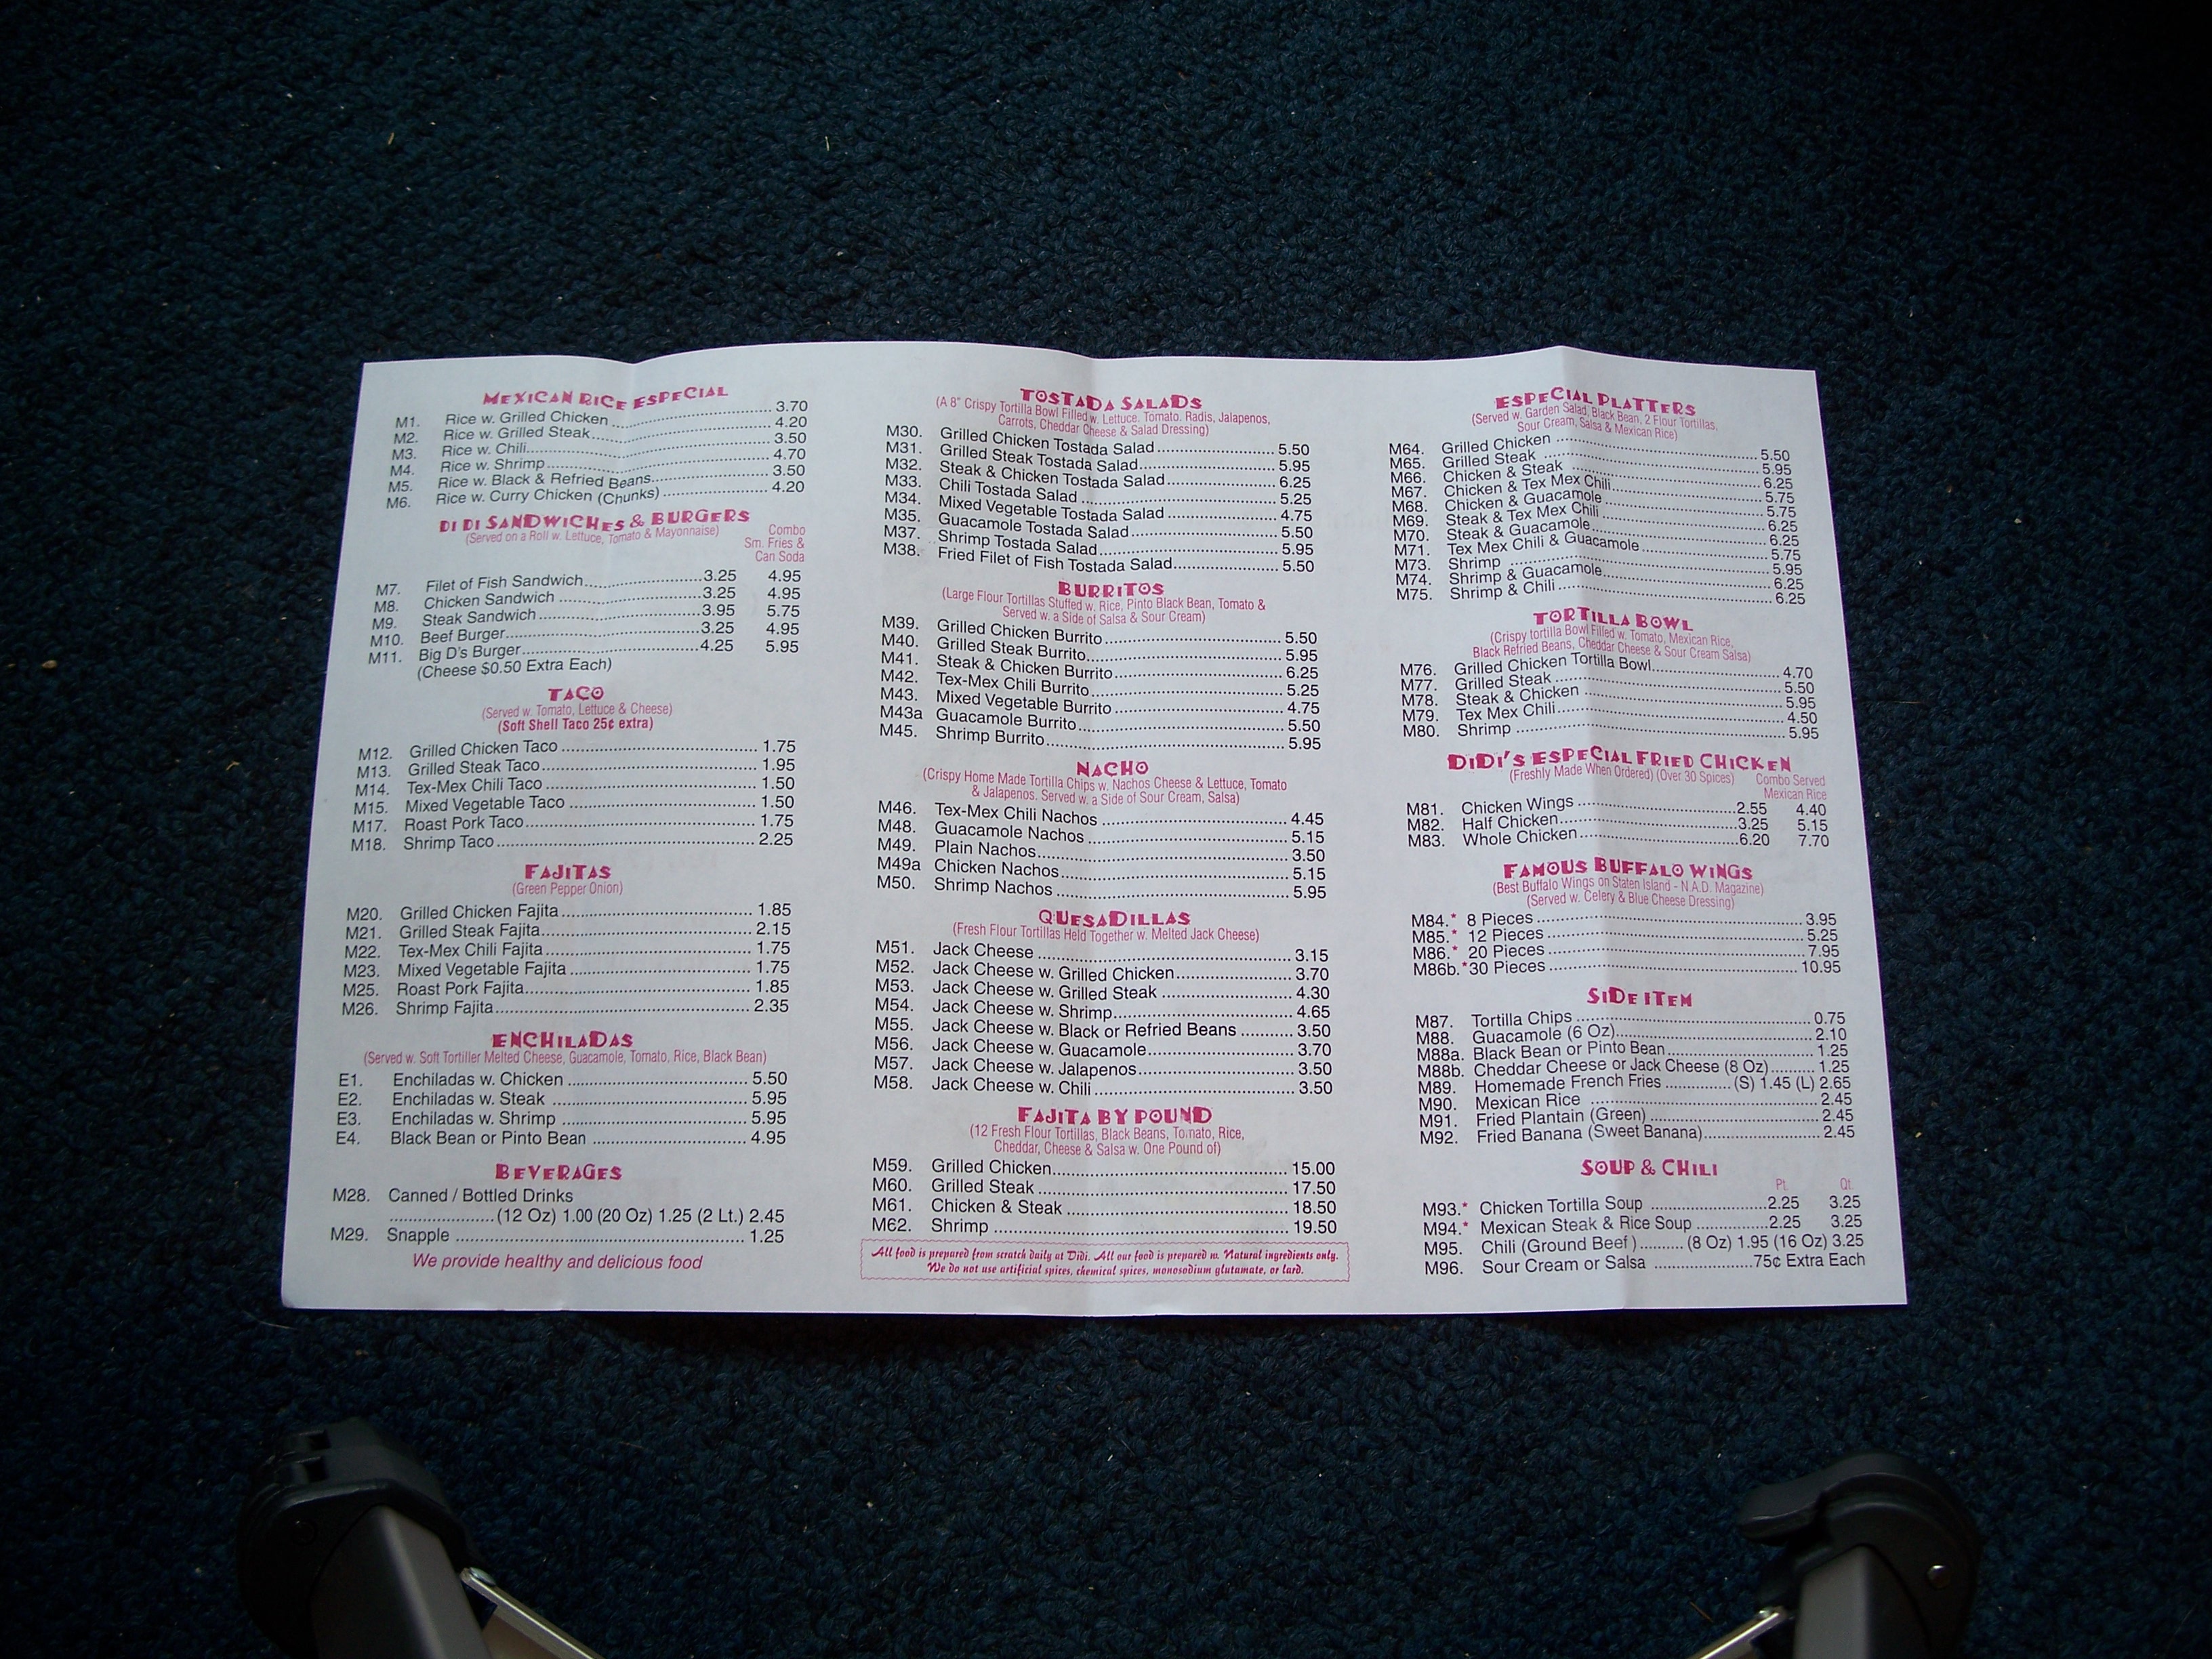 MEXICAN RICE ESPECIAL
M1. Rice w. Grilled Chicken 3.70
M2. Rice w. Grilled Steak 4.20
M3. Rice w. Chili 3.50
M4. Rice w. Shrimp 4.70
M5. Rice w. Black & Refried Beans 3.50
M6. Rice w. Curry Chicken (Chunks) 4.20
DI DI SANDWICHES & BURGERS
(Served on a Roll w. Lettuce, Tomato & Mayonnaise)
Combo
Sm. Fries &
Can Soda
M7. Filet of Fish Sandwich 3.25 4.95
M8. Chicken Sandwich 3.25 4.95
M9. Steak Sandwich 3.95 5.75
M10. Beef Burger 3.25 4.95
M11. Big D's Burger 4.25 5.95
(Cheese $0.50 Extra Each)
TACO
(Served w. Tomato, Lettuce & Cheese)
(Soft Shell Taco 25¢ extra)
M12. Grilled Chicken Taco 1.75
M13. Grilled Steak Taco 1.95
M14. Tex-Mex Chili Taco 1.50
M15. Mixed Vegetable Taco 1.50
M17. Roast Pork Taco 1.75
M18. Shrimp Taco 2.25
FAJITAS
(Green Pepper Onion)
M20. Grilled Chicken Fajita 1.85
M21. Grilled Steak Fajita 2.15
M22. Tex-Mex Chili Fajita 1.75
M23. Mixed Vegetable Fajita 1.75
M25. Roast Pork Fajita 1.85
M26. Shrimp Fajita 2.35
ENCHILADAS
(Served w. Soft Tortiller Melted Cheese, Guacamole, Tomato, Rice, Black Bean)
E1. Enchiladas w. Chicken 5.50
E2. Enchiladas w. Steak 5.95
E3. Enchiladas w. Shrimp 5.95
E4. Black Bean or Pinto Bean 4.95
BEVERAGES
M28. Canned / Bottled Drinks
(12 Oz) 1.00 (20 Oz) 1.25 (2 Lt.) 2.45
M29. Snapple 1.25
We provide healthy and delicious food
TOSTADA SALADS
(A 8" Crispy Tortilla Bowl Filled w. Lettuce, Tomato, Radis, Jalapenos,
Carrots, Cheddar Cheese & Salad Dressing)
M30. Grilled Chicken Tostada Salad 5.50
M31. Grilled Steak Tostada Salad 5.95
M32. Steak & Chicken Tostada Salad 6.25
M33. Chili Tostada Salad 5.25
M34. Mixed Vegetable Tostada Salad 4.75
M35. Guacamole Tostada Salad 5.50
M37. Shrimp Tostada Salad 5.95
M38. Fried Filet of Fish Tostada Salad 5.50
BURRITOS
(Large Flour Tortillas Stuffed w. Rice, Pinto Black Bean, Tomato &
Served w. a Side of Salsa & Sour Cream)
M39. Grilled Chicken Burrito 5.50
M40. Grilled Steak Burrito 5.95
M41. Steak & Chicken Burrito 6.25
M42. Tex-Mex Chili Burrito 5.25
M43. Mixed Vegetable Burrito 4.75
M43a Guacamole Burrito 5.50
M45. Shrimp Burrito 5.95
NACHO
(Crispy Home Made Tortilla Chips w. Nachos Cheese & Lettuce, Tomato
& Jalapenos. Served w. a Side of Sour Cream, Salsa)
M46. Tex-Mex Chili Nachos 4.45
M48. Guacamole Nachos 5.15
M49. Plain Nachos 3.50
M49a Chicken Nachos 5.15
M50. Shrimp Nachos 5.95
QUESADILLAS
(Fresh Flour Tortillas Held Together w. Melted Jack Cheese)
M51. Jack Cheese 3.15
M52. Jack Cheese w. Grilled Chicken 3.70
M53. Jack Cheese w. Grilled Steak 4.30
M54. Jack Cheese w. Shrimp 4.65
M55. Jack Cheese w. Black or Refried Beans 3.50
M56. Jack Cheese w. Guacamole 3.70
M57. Jack Cheese w. Jalapenos 3.50
M58. Jack Cheese w. Chili 3.50
FAJITA BY POUND
(12 Fresh Flour Tortillas, Black Beans, Tomato, Rice,
Cheddar, Cheese & Salsa w. One Pound of)
M59. Grilled Chicken 15.00
M60. Grilled Steak 17.50
M61. Chicken & Steak 18.50
M62. Shrimp 19.50
All food is prepared from scratch daily at Didi. All our food is prepared w. Natural ingredients only.
We do not use artificial spices, chemical spices, monosodium glutamate, or lard.
ESPECIAL PLATTERS
(Served w. Garden Salad, Black Bean, 2 Flour Tortillas,
Sour Cream, Salsa & Mexican Rice)
M64. Grilled Chicken 5.50
M65. Grilled Steak 5.95
M66. Chicken & Steak 6.25
M67. Chicken & Tex Mex Chili 5.75
M68. Chicken & Guacamole 5.75
M69. Steak & Tex Mex Chili 6.25
M70. Steak & Guacamole 6.25
M71. Tex Mex Chili & Guacamole 5.75
M73. Shrimp 5.95
M74. Shrimp & Guacamole 6.25
M75. Shrimp & Chili 6.25
TORTILLA BOWL
(Crispy tortilla Bowl Filled w. Tomato, Mexican Rice,
Black Refried Beans, Cheddar Cheese & Sour Cream Salsa)
M76. Grilled Chicken Tortilla Bowl 4.70
M77. Grilled Steak 5.50
M78. Steak & Chicken 5.95
M79. Tex Mex Chili 4.50
M80. Shrimp 5.95
DIDI'S ESPECIAL FRIED CHICKEN
(Freshly Made When Ordered) (Over 30 Spices)
Combo Served
Mexican Rice
M81. Chicken Wings 2.55 4.40
M82. Half Chicken 3.25 5.15
M83. Whole Chicken 6.20 7.70
FAMOUS BUFFALO WINGS
(Best Buffalo Wings on Staten Island - N.A.D. Magazine)
(Served w. Celery & Blue Cheese Dressing)
M84.* 8 Pieces 3.95
M85.* 12 Pieces 5.25
M86.* 20 Pieces 7.95
M86b.* 30 Pieces 10.95
SIDE ITEM
M87. Tortilla Chips 0.75
M88. Guacamole (6 Oz) 2.10
M88a. Black Bean or Pinto Bean 1.25
M88b. Cheddar Cheese or Jack Cheese (8 Oz) 1.25
M89. Homemade French Fries (S) 1.45 (L) 2.65
M90. Mexican Rice 2.45
M91. Fried Plantain (Green) 2.45
M92. Fried Banana (Sweet Banana) 2.45
SOUP & CHILI
Pt. Qt.
M93.* Chicken Tortilla Soup 2.25 3.25
M94.* Mexican Steak & Rice Soup 2.25 3.25
M95. Chili (Ground Beef) (8 Oz) 1.95 (16 Oz) 3.25
M96. Sour Cream or Salsa 75¢ Extra Each